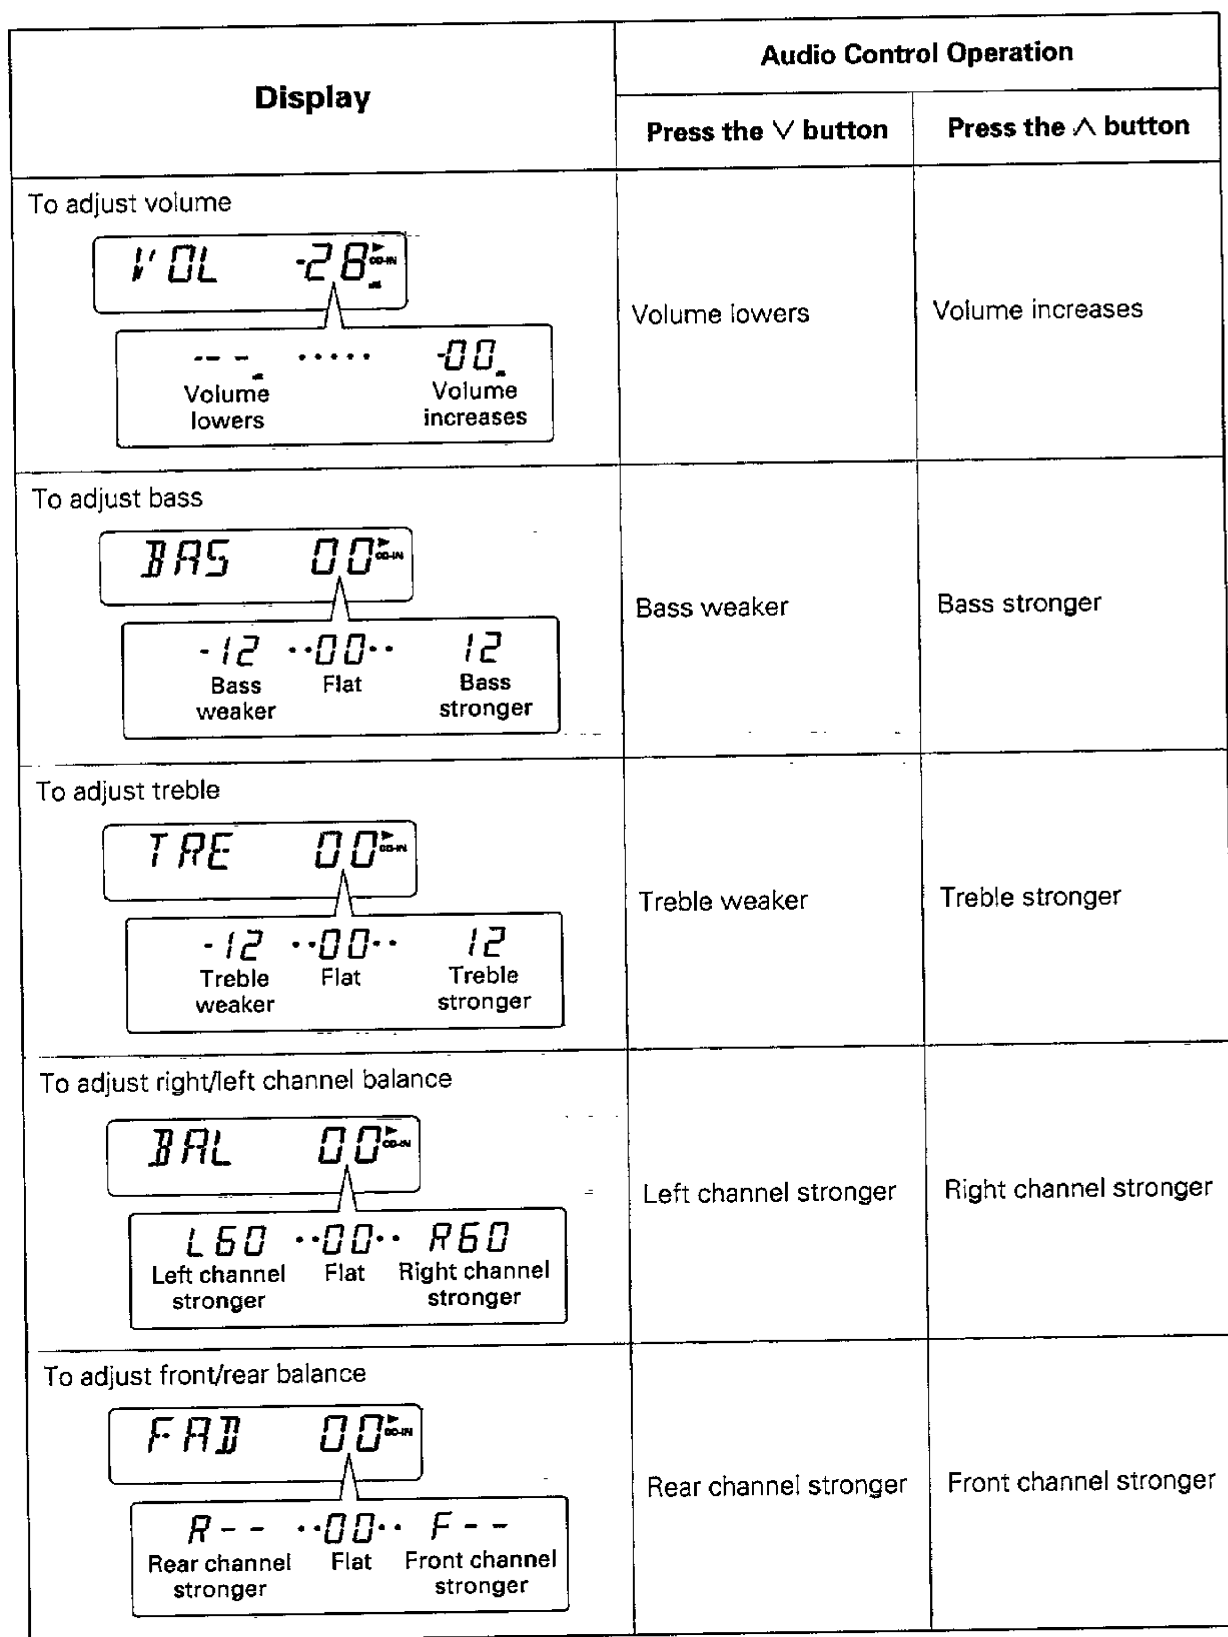 Display
Audio Control Operation
Press the ∨ button
Press the ∧ button
To adjust volume
VOL -28 CD-IN
--- ····· -00
Volume lowers
Volume increases
Volume lowers
Volume increases
To adjust bass
BAS 00 CD-IN
-12 ··00·· 12
Bass weaker
Flat
Bass stronger
Bass weaker
Bass stronger
To adjust treble
TRE 00 CD-IN
-12 ··00·· 12
Treble weaker
Flat
Treble stronger
Treble weaker
Treble stronger
To adjust right/left channel balance
BAL 00 CD-IN
L60 ··00·· R60
Left channel stronger
Flat
Right channel stronger
Left channel stronger
Right channel stronger
To adjust front/rear balance
FAD 00 CD-IN
R-- ··00·· F--
Rear channel stronger
Flat
Front channel stronger
Rear channel stronger
Front channel stronger